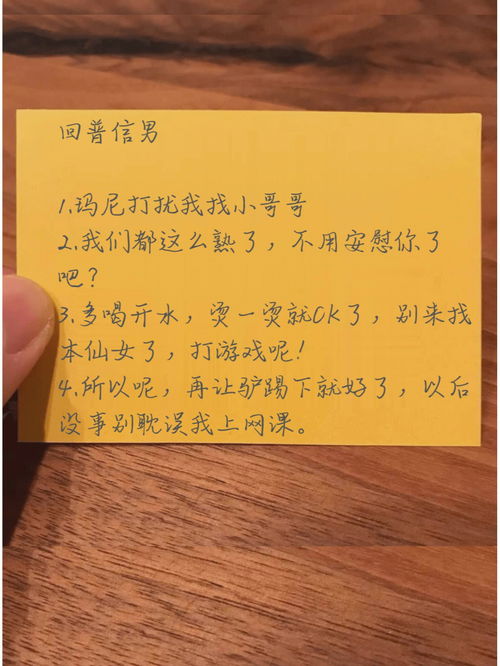 回普信男
1.玛尼打扰我找小哥哥
2.我们都这么熟了，不用安慰你了
吧？
3.多喝开水，烫一烫就OK了，别来找
本仙女了，打游戏呢！
4.所以呢，再让驴踢下就好了，以后
没事别耽误我上网课。